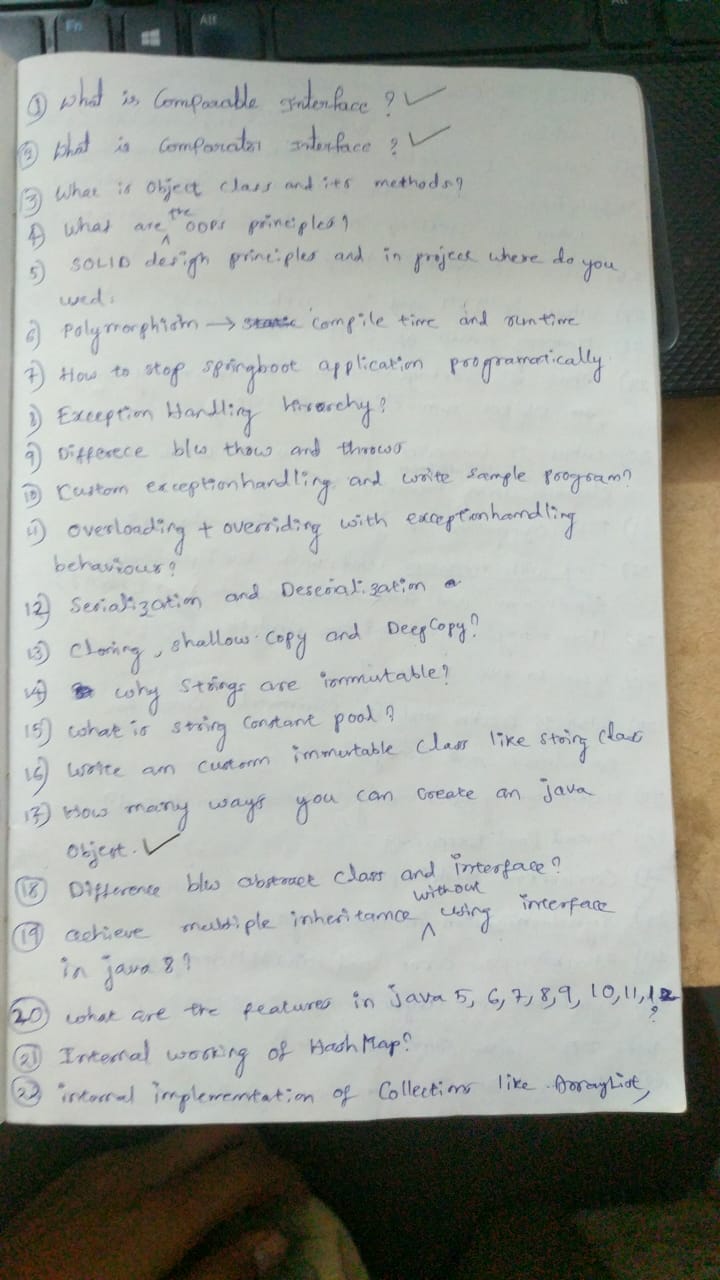 Fn
Alt
Alt
① What is Comparable Interface ? ✓
② What is Comparator Interface ? ✓
③ What is Object class and its methods?
4) what are the OOPs principles?
5) SOLID design principles and in project where do you
used.
6) Polymorphism → static compile time and runtime
7) How to stop springboot application programatically
8) Exception Handling hirarchy?
9) Differece b/w thow and throws
10) Custom exceptionhandling and write sample program?
11) overloading + overriding with exceptionhandling
behaviour?
12) Serialization and Deserialization
13) Cloning, shallow copy and DeepCopy?
14) why Strings are immutable?
15) what is string constant pool?
16) Write an custom immutable class like string class
17) How many ways you can create an java
Object. ✓
⑱ Difference b/w abstract class and interface?
⑲ achieve multiple inheritance without using interface
in java 8?
⑳ what are the features in java 5, 6, 7, 8, 9, 10, 11, 12
?
㉑ Internal working of HashMap?
㉒ internal implementation of Collections like ArrayList,